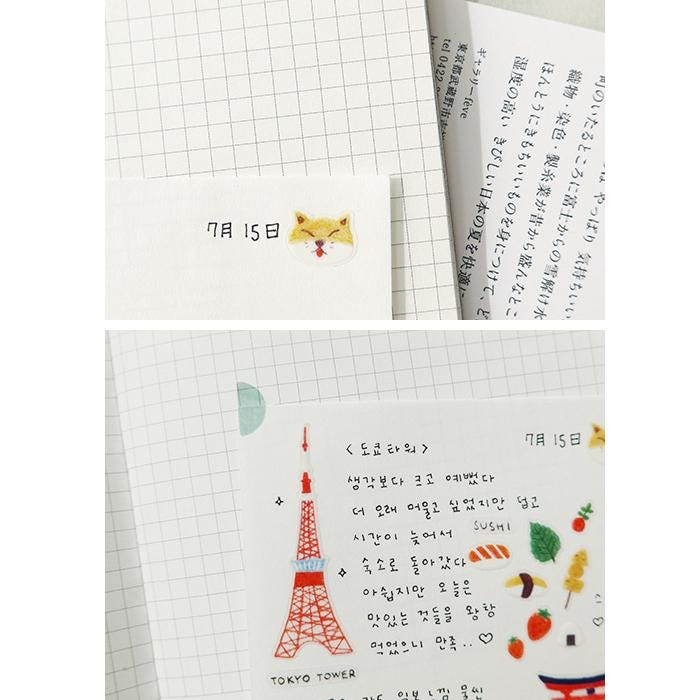 ギャラリーfeve
東京都武蔵野市
tel 0422
やっぱり 気持ちいい
間のいたるところに富士からの雪解け水
織物・染色・製糸業が昔から盛んなとこ
ほんとうにきもちいいものを身につけて、ど
湿度の高い きびしい日本の夏を快適に
7月 15日
<도쿄타워>
7月 15日
생각보다 크고 예뻤다
더 오래 머물고 싶었지만 덥고
시간이 늦어서
SUSHI
숙소로 돌아갔다
아쉽지만 오늘은
맛있는 것들을 왕창
먹었으니 만족..♡
TOKYO TOWER